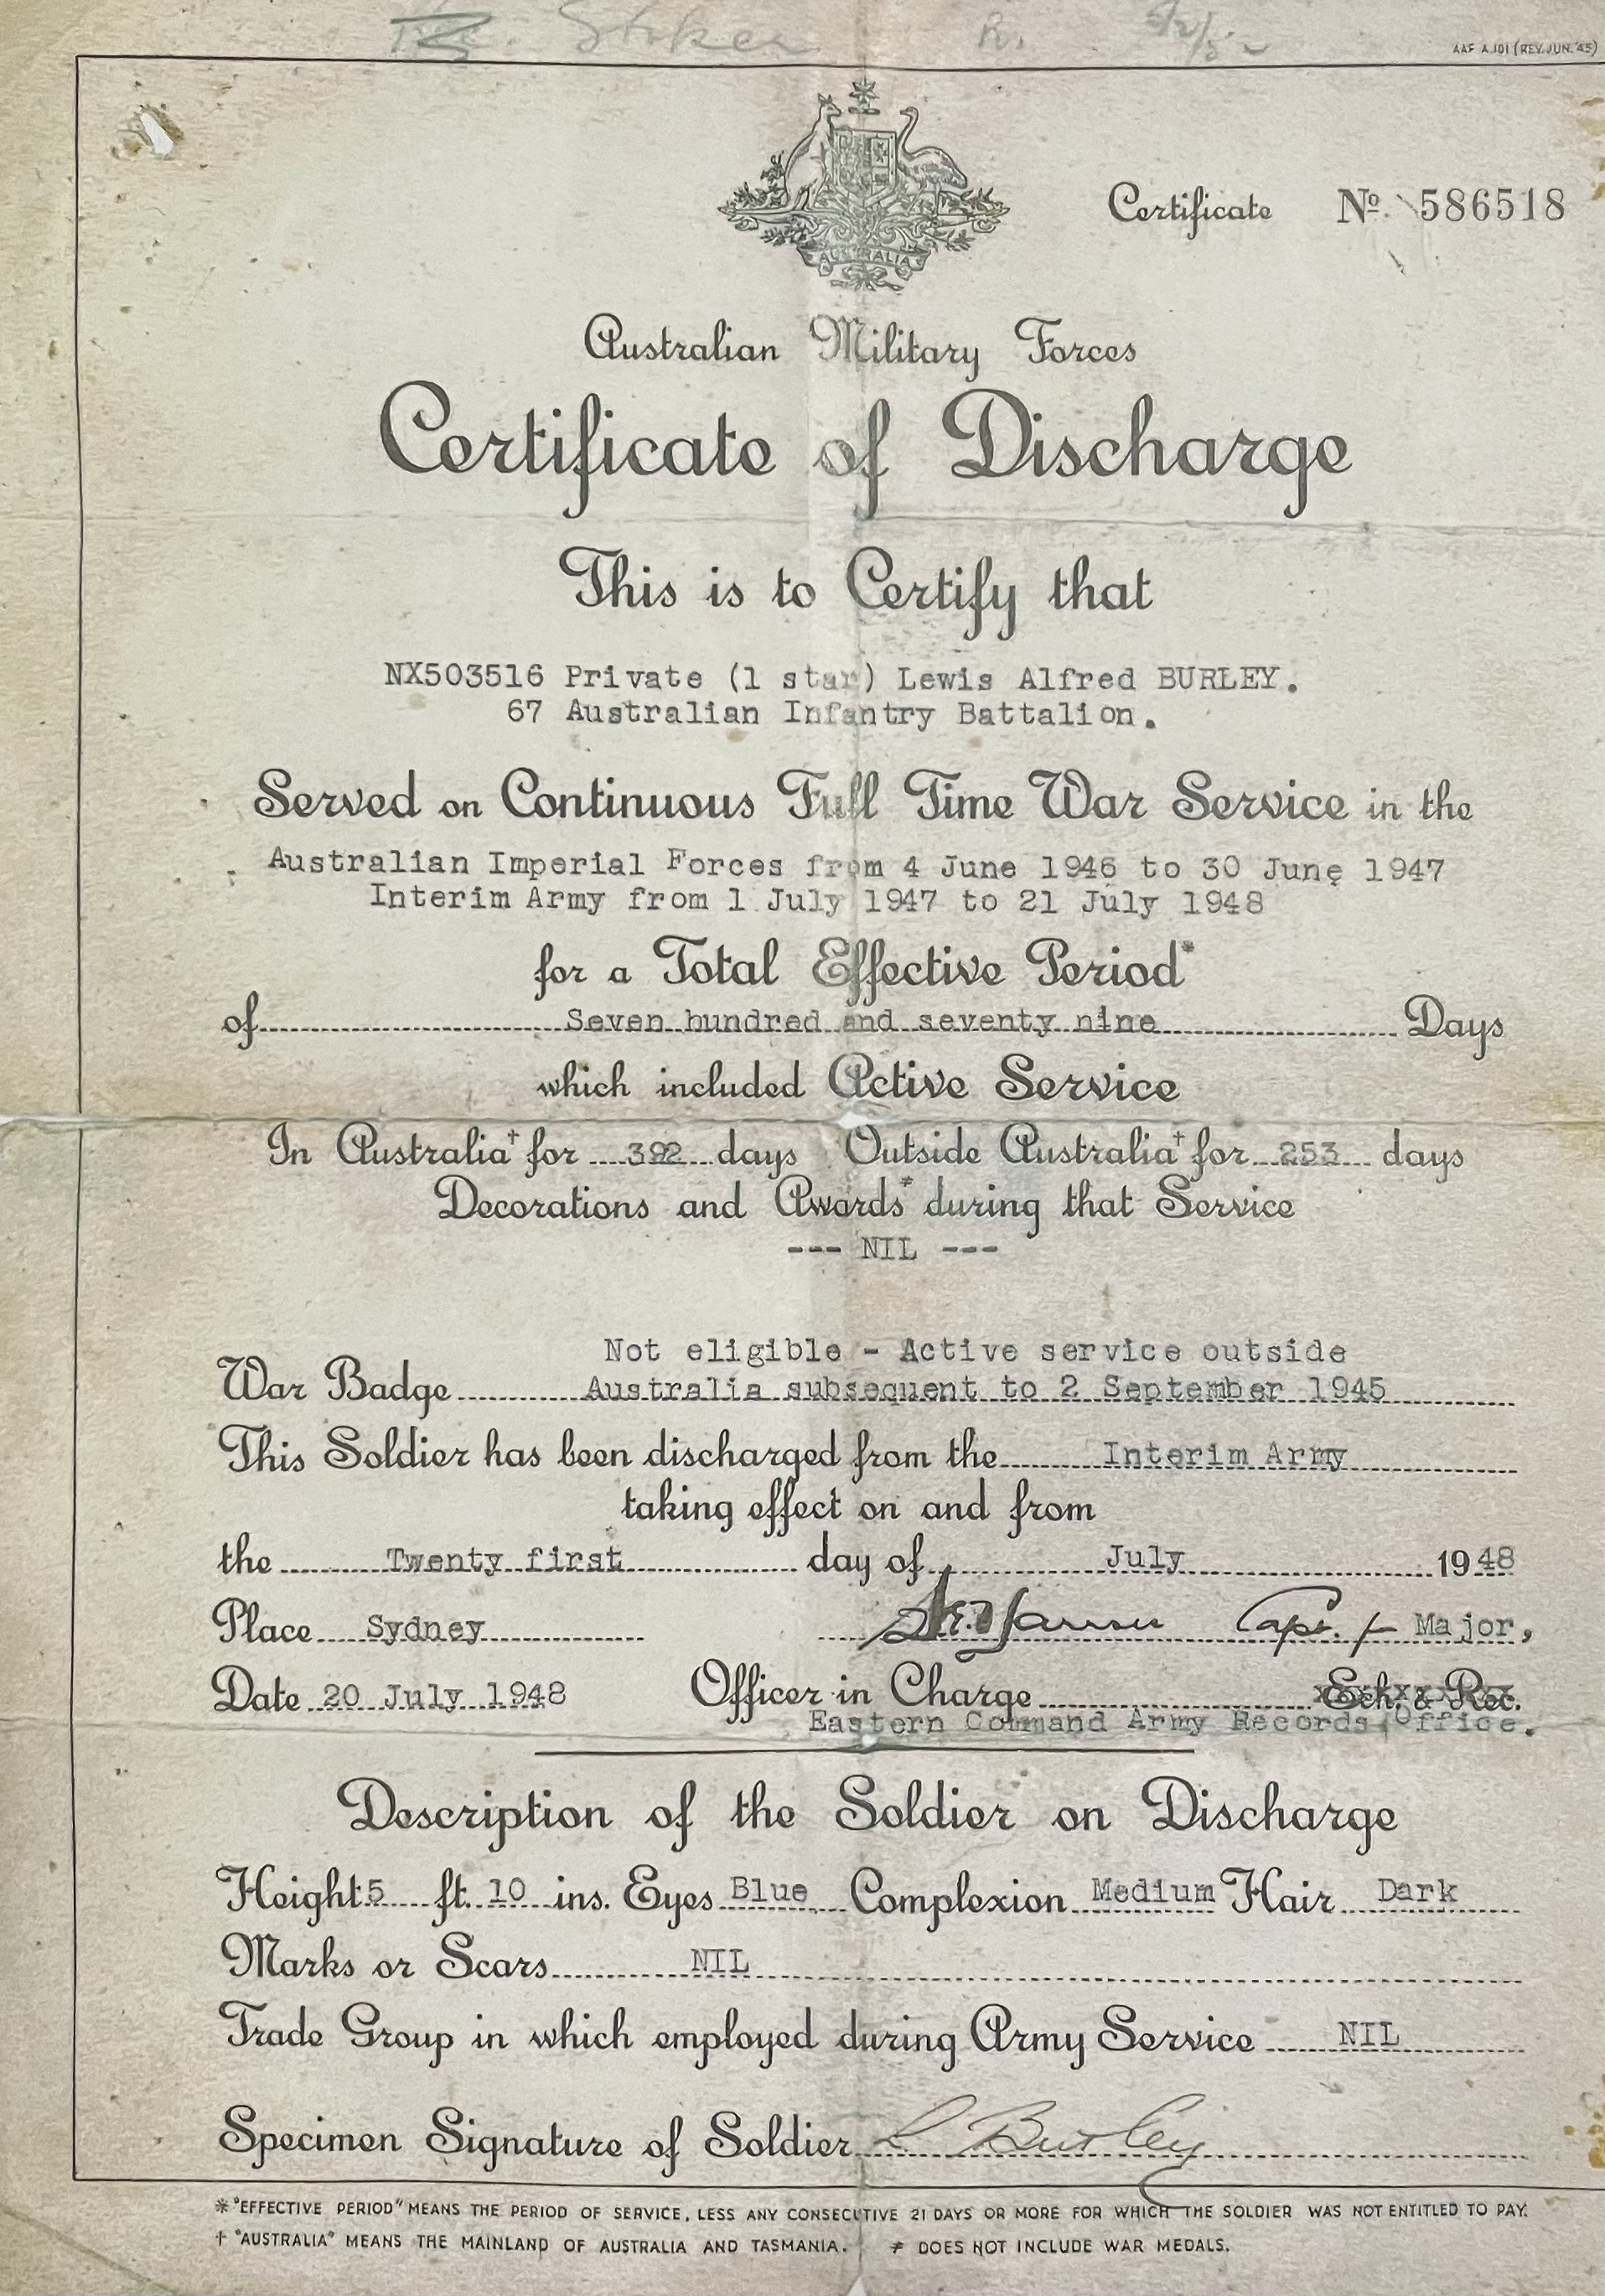 Stoker R.
AAF A.101 (REV. JUN. '45)
AUSTRALIA
Certificate No. 586518
Australian Military Forces
Certificate of Discharge
This is to Certify that
NX503516 Private (1 star) Lewis Alfred BURLEY.
67 Australian Infantry Battalion.
Served on Continuous Full Time War Service in the
Australian Imperial Forces from 4 June 1946 to 30 June 1947
Interim Army from 1 July 1947 to 21 July 1948
for a Total Effective Period*
of Seven hundred and seventy nine Days
which included Active Service
In Australia† for 392 days Outside Australia† for 253 days
Decorations and Awards≠ during that Service
--- NIL ---
Not eligible - Active service outside
War Badge Australia subsequent to 2 September 1945
This Soldier has been discharged from the Interim Army
taking effect on and from
the Twenty first day of July 1948
Place Sydney Capt. f Major,
Date 20 July 1948 Officer in Charge Ech. & Rec.
Eastern Command Army Records Office.
Description of the Soldier on Discharge
Height 5 ft. 10 ins. Eyes Blue Complexion Medium Hair Dark
Marks or Scars NIL
Trade Group in which employed during Army Service NIL
Specimen Signature of Soldier L Burley
* "EFFECTIVE PERIOD" MEANS THE PERIOD OF SERVICE, LESS ANY CONSECUTIVE 21 DAYS OR MORE FOR WHICH THE SOLDIER WAS NOT ENTITLED TO PAY.
† "AUSTRALIA" MEANS THE MAINLAND OF AUSTRALIA AND TASMANIA. ≠ DOES NOT INCLUDE WAR MEDALS.